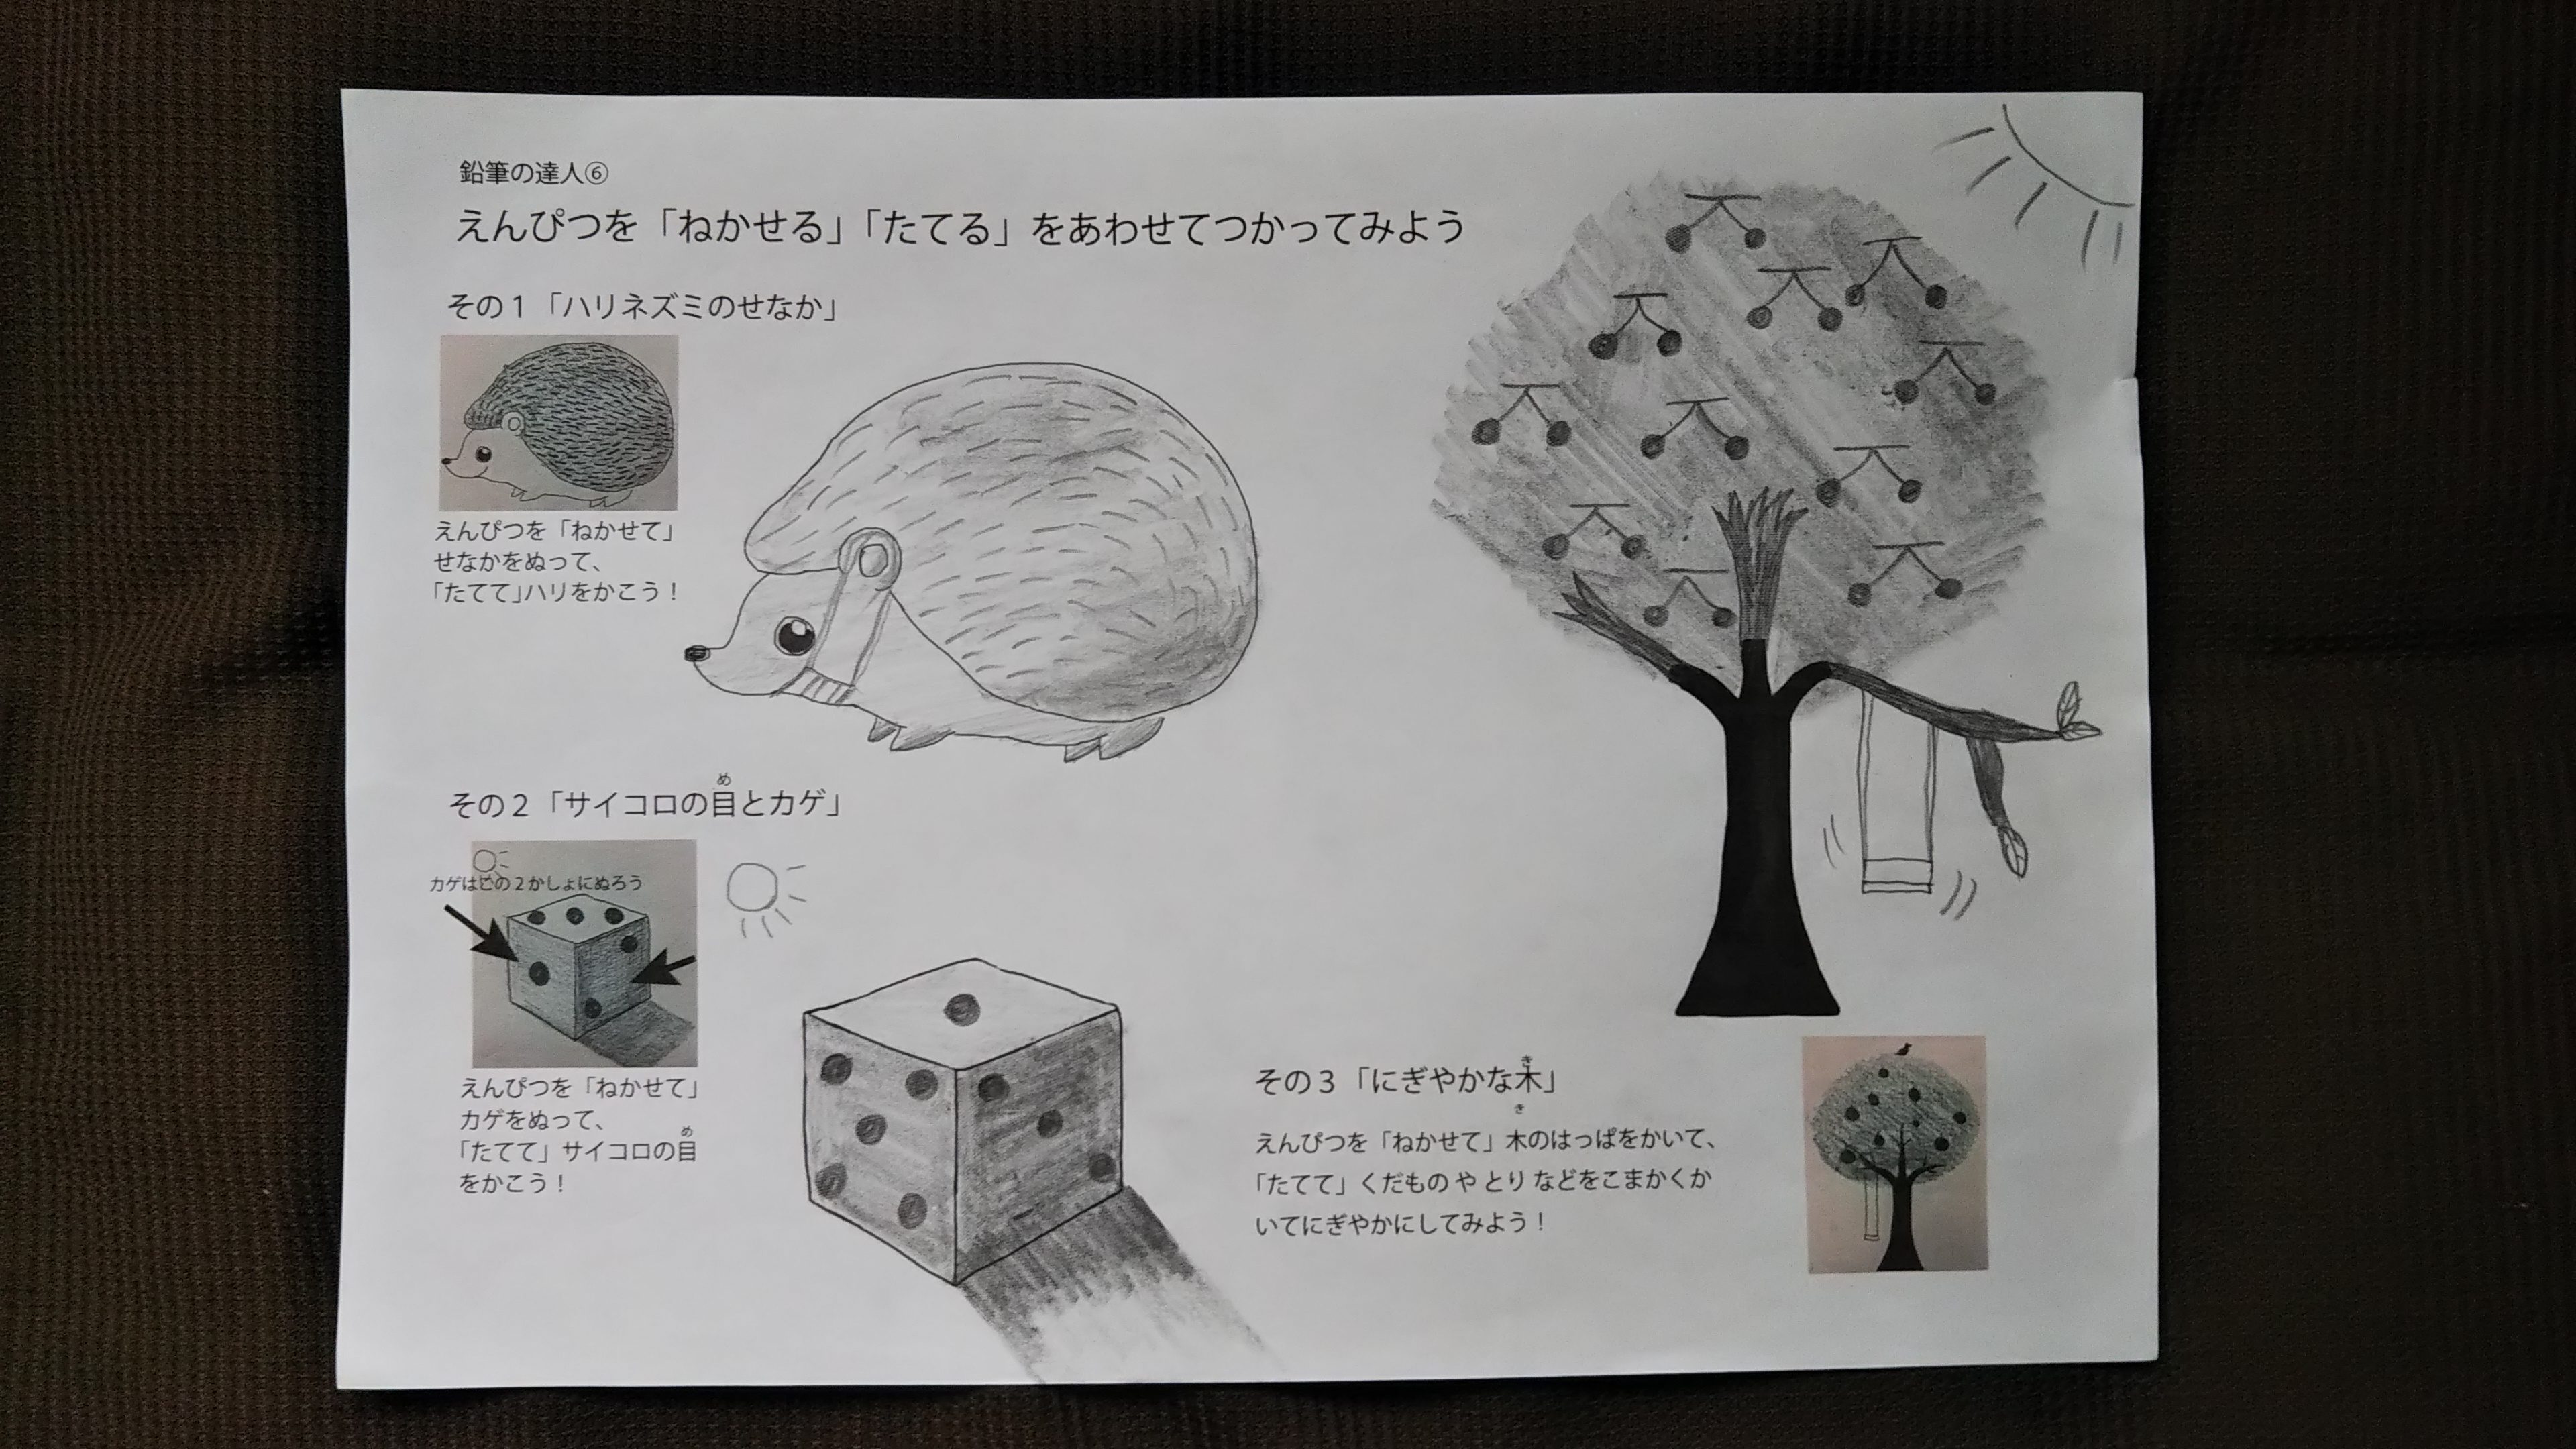 鉛筆の達人⑥
えんぴつを「ねかせる」「たてる」をあわせてつかってみよう
その1「ハリネズミのせなか」
えんぴつを「ねかせて」
せなかをぬって、
「たてて」ハリをかこう！
め
その2「サイコロの目とカゲ」
カゲはこの2かしょにぬろう
えんぴつを「ねかせて」
カゲをぬって、
め
「たてて」サイコロの目
をかこう！
き
その3「にぎやかな木」
き
えんぴつを「ねかせて」木のはっぱをかいて、
「たてて」くだもの や とり などをこまかくか
いてにぎやかにしてみよう！